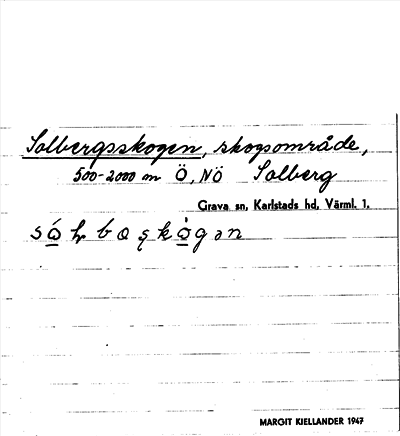 Solbergsskogen, skogsområde,
500-2000 m Ö, NÖ Solberg
Grava sn, Karlstads hd, Värml. 1.
MARGIT KIELLANDER 1947